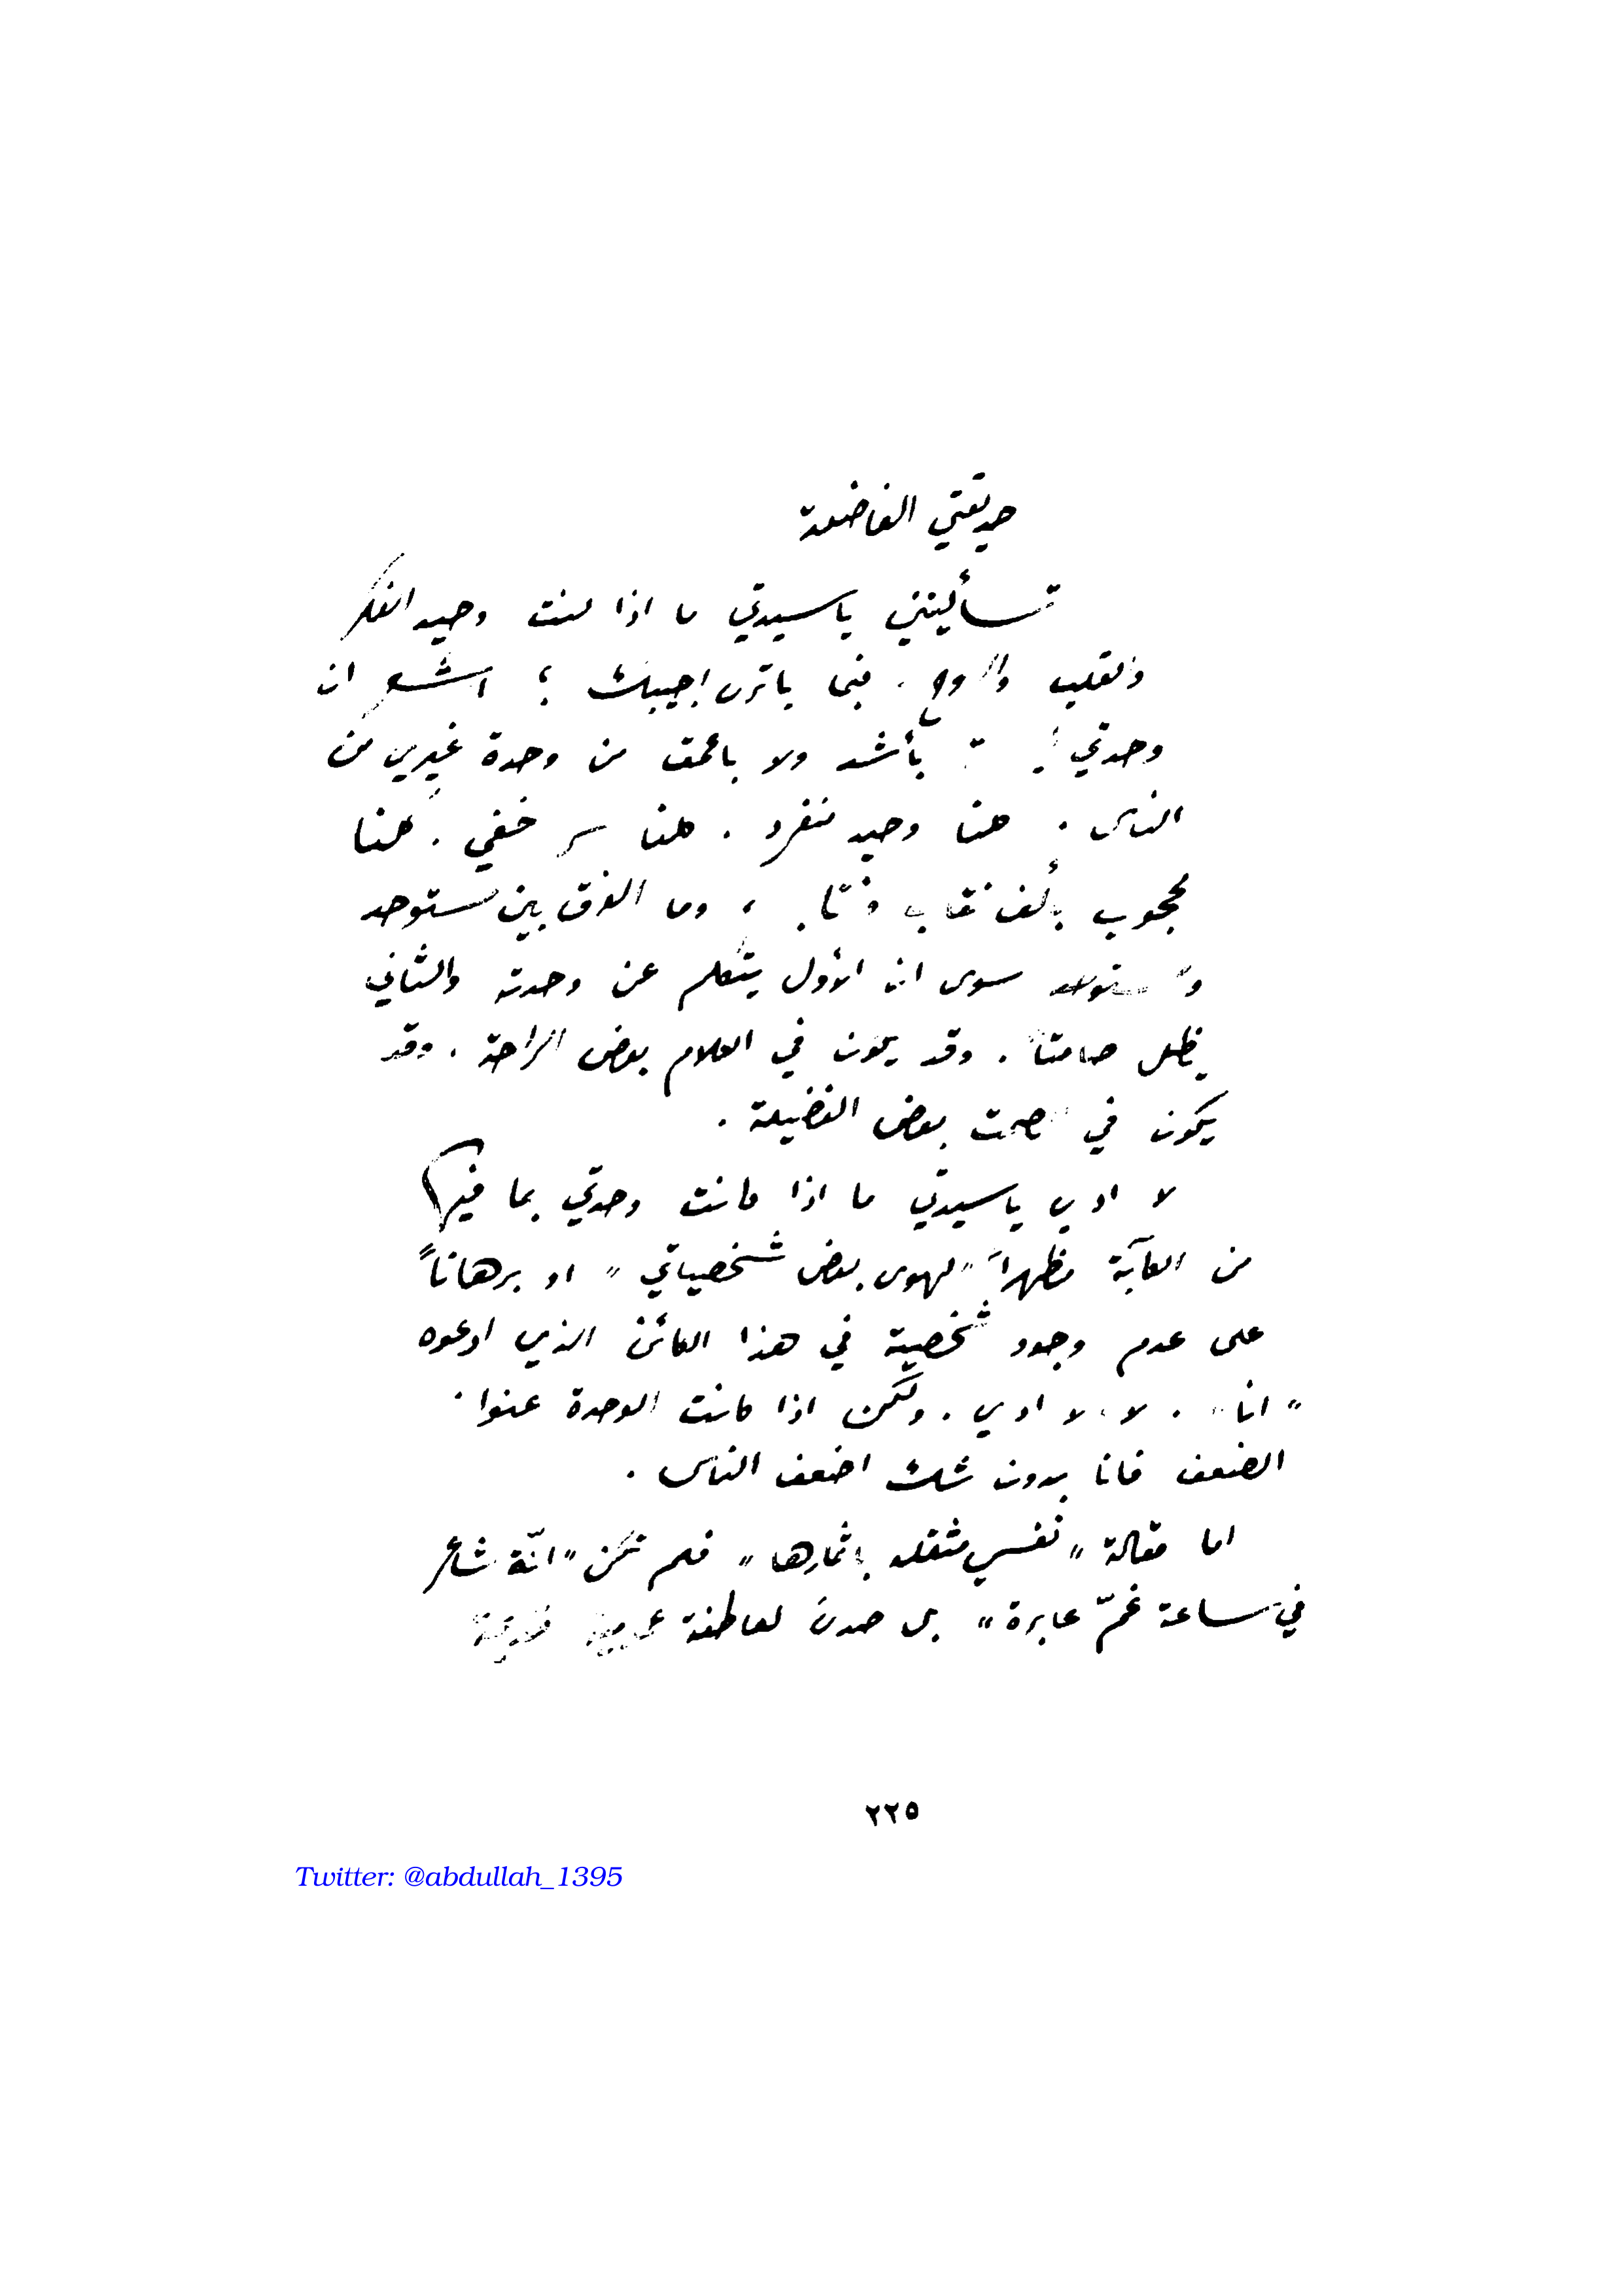 صديقتي الفاضلة
تسألينني يا سيدتي ما اذا كنت وحيد الفكر
والقلب والروح . فبما يا ترى اجيبك ؟ اشعر ان
وحدتي ليست بأشد ولا باعمق من وحدة غيري من
الناس . كلنا وحيد منفرد . كلنا سر خفي . كلنا
محجوب بألف نقاب ونقاب ، وما الفرق بين مستوحد
ومستوحد سوى ان الأول يتكلم عن وحدته والثاني
يظل صامتاً . وقد يكون في الكلام بعض الراحة . وقد
يكون في الصمت بعض الفضيلة .
لا ادري يا سيدتي ما اذا كانت وحدتي بما فيها
من الكآبة مظهراً "لهوى بعض شخصياتي" او برهاناً
على عدم وجود شخصية في هذا الكائن الذي ادعوه
"انا" . لا ، لا ادري . ولكن اذا كانت الوحدة عنوان
الضعف فانا بدون شك اضعف الناس .
اما مقالة "نفسي مثقلة باثمارها" فلم تكن "انّة شاعر
في ساعة غمّ عابرة" بل صدى لعاطفة
٢٢٥
Twitter: @abdullah_1395